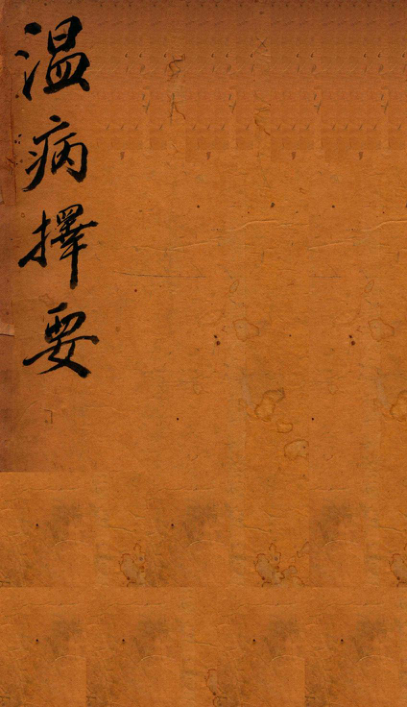 温病擇要